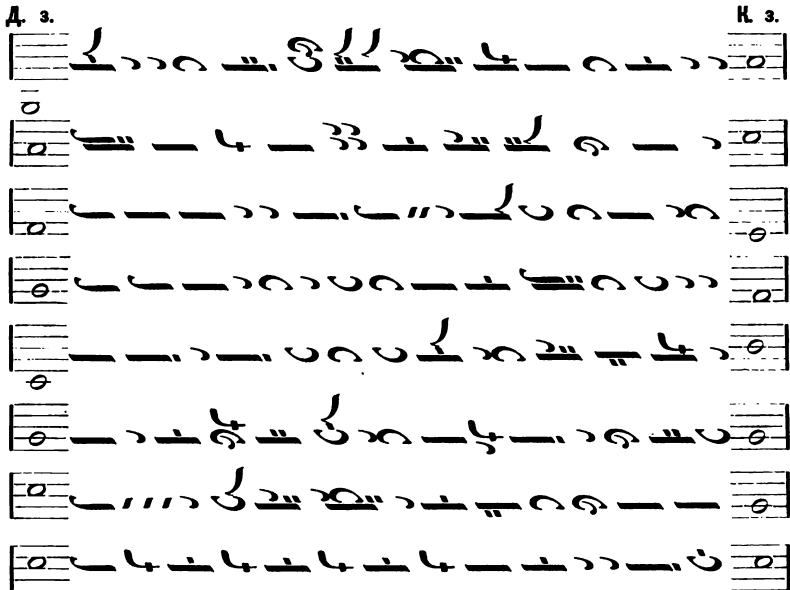 Д. з. К. з.